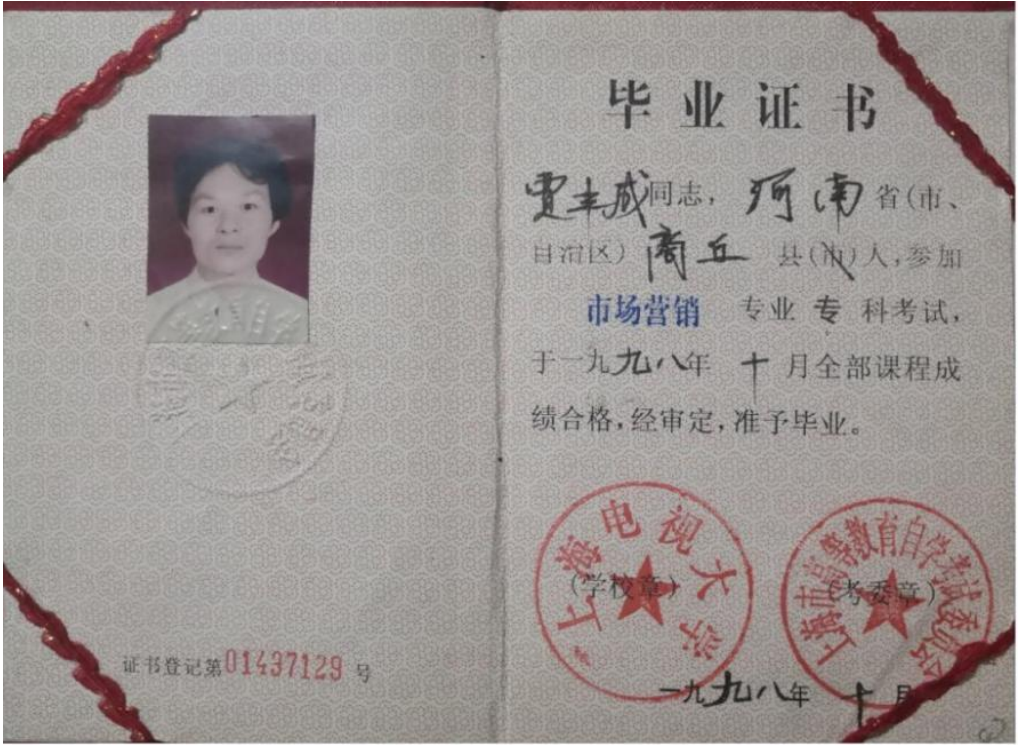 证书登记第01437129号
毕业证书
贾丰成同志，河南省(市、
自治区)商丘县(市)人，参加
市场营销 专业专科考试，
于一九九八年十月全部课程成
绩合格，经审定，准予毕业。
上海电视大学
(学校章)
上海市高等教育自学考试委员会
(考委章)
一九九八年十月